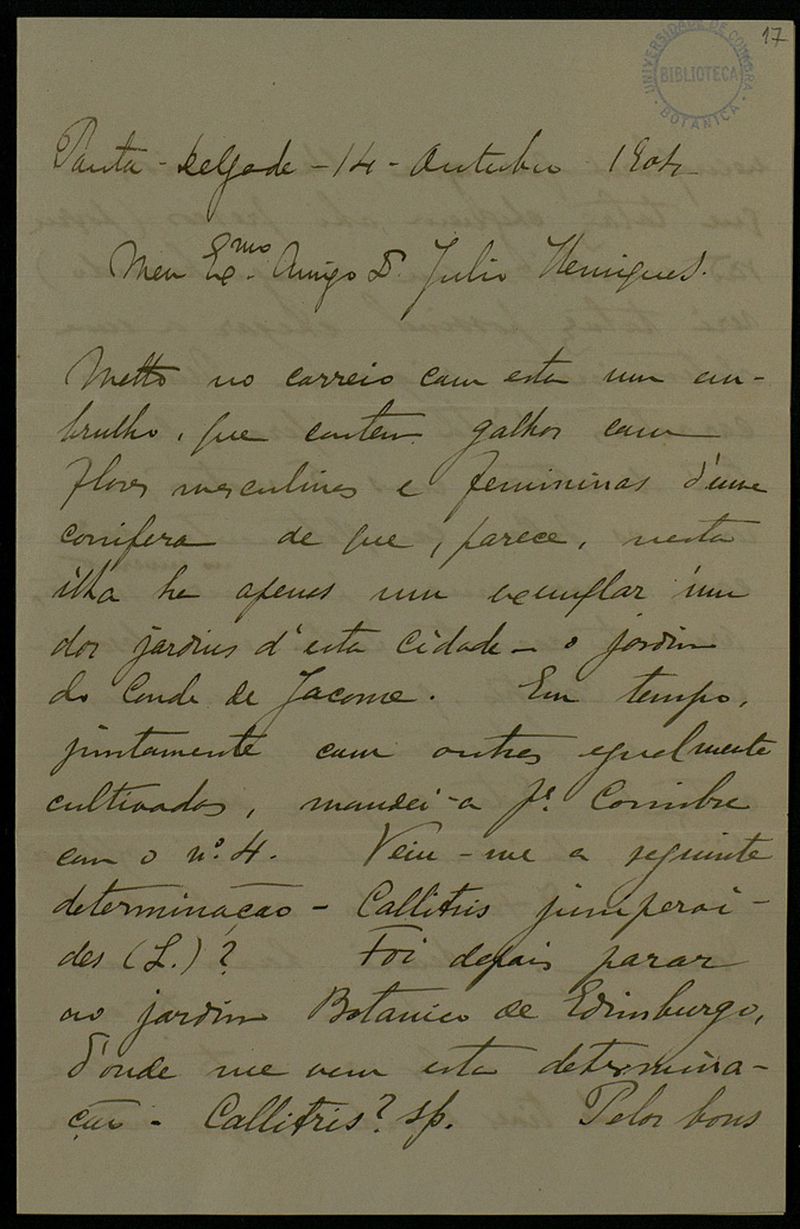 17
UNIVERSIDADE DE COIMBRA
BIBLIOTECA
BOTANICA
Ponta-Delgada - 14 - Outubro 1904
Meu Exmo. Amigo Dr. Julio Henriques.
Metto no correio com esta um em-
brulho, que contem galhos com
flores masculinas e femininas d'uma
conifera de que, parece, nesta
ilha ha apenas um exemplar n'um
dos jardins d'esta cidade - o jardim
do Conde de Jacome. Em tempo,
juntamente com outras egualmente
cultivadas, mandei-a pa. Coimbra
com o no. 4. Veiu-me a seguinte
determinação - Callitris juniperoi-
des (L.)? Foi depois parar
ao jardim Botanico de Edimburgo,
d'onde me vem esta determina-
ção - Callitris? sp. Pelos bons